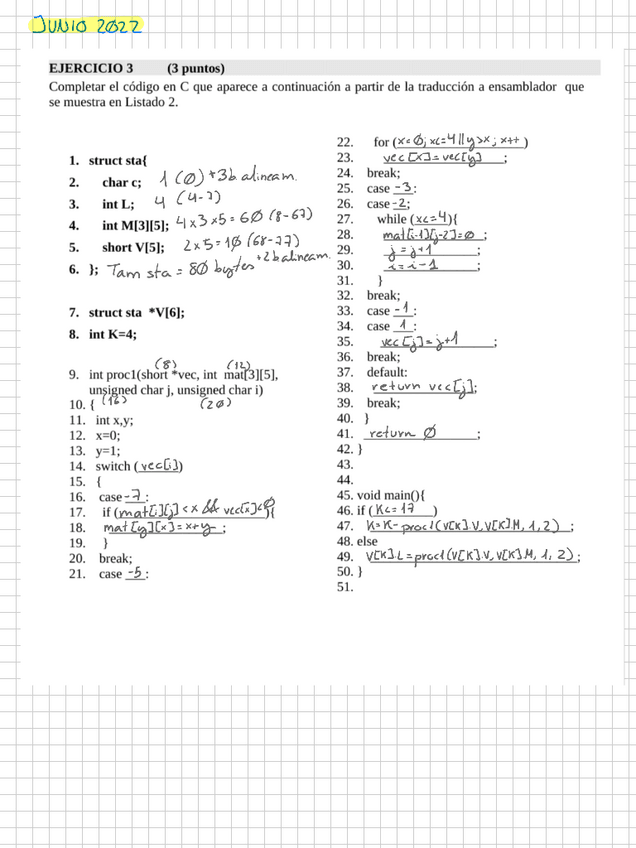 JUNIO 2022
EJERCICIO 3 (3 puntos)
Completar el código en C que aparece a continuación a partir de la traducción a ensamblador que
se muestra en Listado 2.
1. struct sta{
2. char c; 1 (0) +3b alineam.
3. int L; 4 (4-7)
4. int M[3][5]; 4x3x5=60 (8-67)
5. short V[5]; 2x5=10 (68-77)
+2b alineam.
6. }; Tam sta = 80 bytes
7. struct sta *V[6];
8. int K=4;
(8) (12)
9. int proc1(short *vec, int mat[3][5],
unsigned char j, unsigned char i)
10. { (16) (20)
11. int x,y;
12. x=0;
13. y=1;
14. switch (vec[i])
15. {
16. case -7:
17. if (mat[i][j]<x && vec[x]<0){
18. mat[y][x]=x+y- ;
19. }
20. break;
21. case -5:
22. for (x=0; x<=4||y>x; x++)
23. vec[x]=vec[y] ;
24. break;
25. case -3:
26. case -2;
27. while (x<=4){
28. mat[i-1][j-2]=0 ;
29. j=j+1 ;
30. i=i-1 ;
31. }
32. break;
33. case -1:
34. case 1:
35. vec[j]=j+1 ;
36. break;
37. default:
38. return vec[j];
39. break;
40. }
41. return 0 ;
42. }
43.
44.
45. void main(){
46. if (K<=17 )
47. K=K-proc1(V[K].V,V[K].M,1,2) ;
48. else
49. V[K].L=proc1(V[K].V,V[K].M,1,2);
50. }
51.